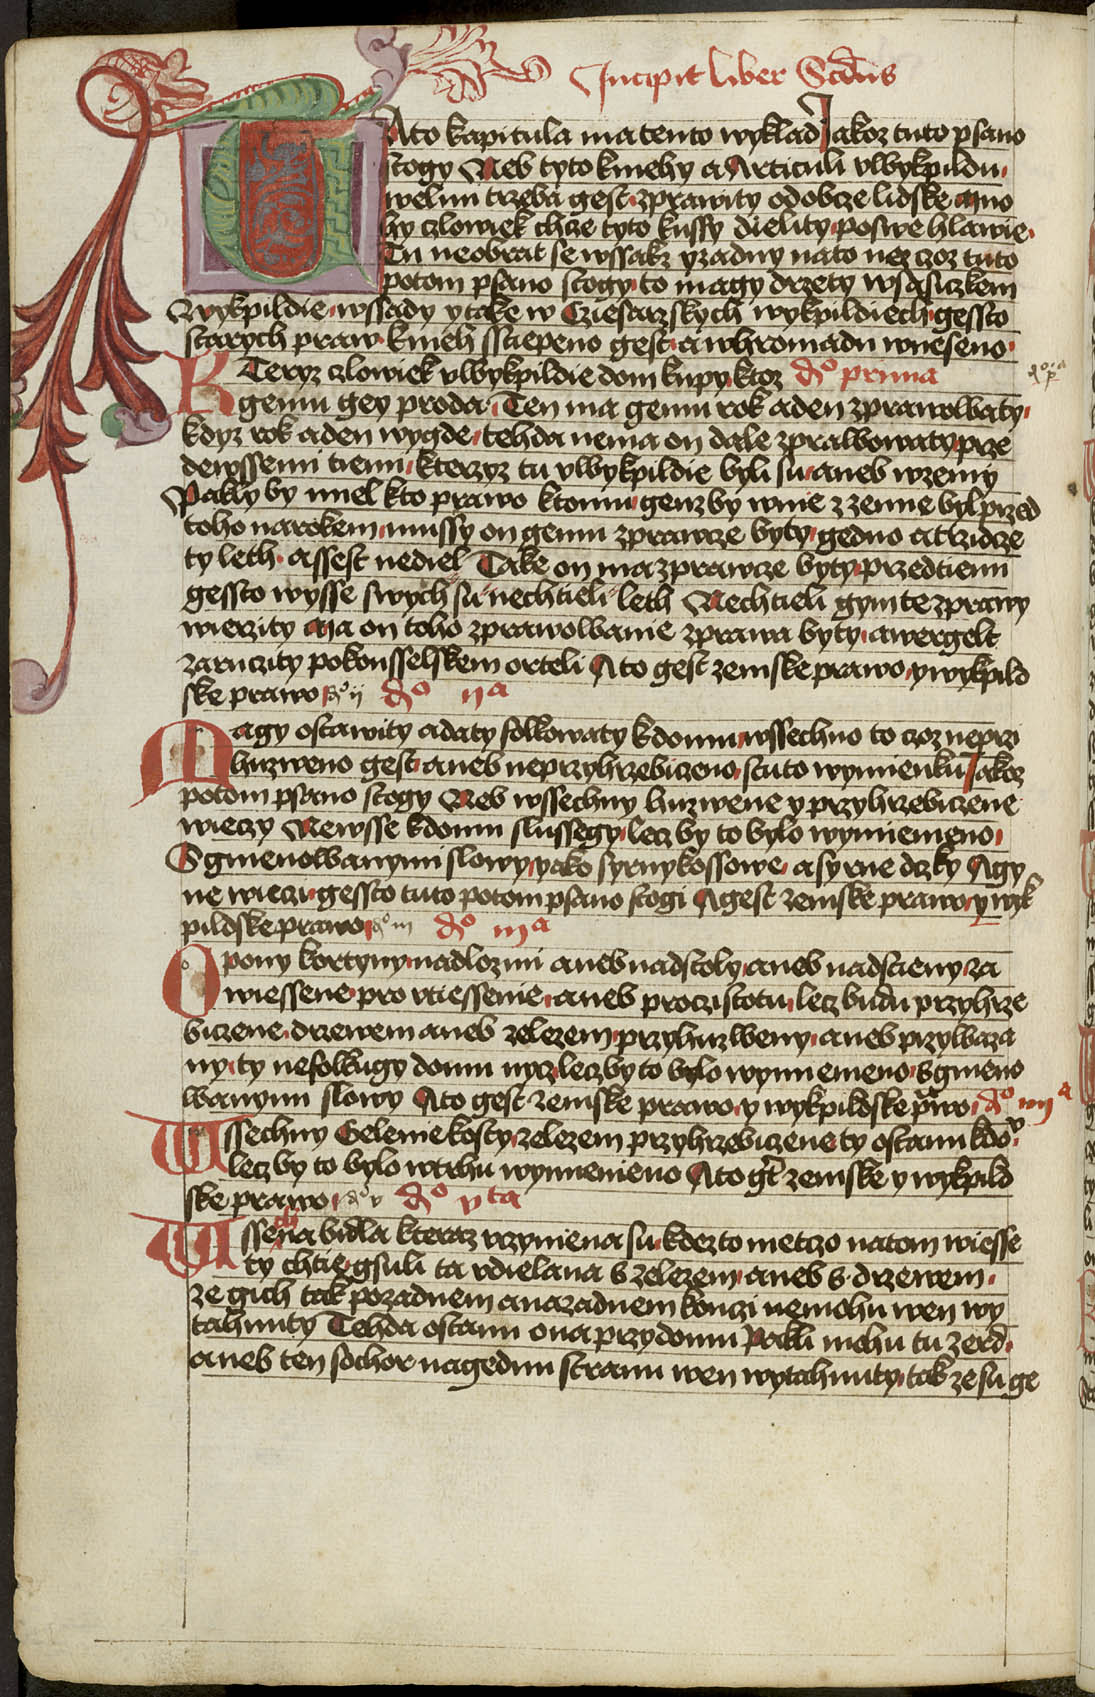 Incipit liber Scdus
TAto kapitula ma tento wyklad Jakoz tuto psano
stogy Neb tyto knehy a Articuli vwykpildu
welmi trzeba gest zprawity odobcze lidske a mo
hy czlowiek chze tyto kussy dielity poswe hlawie
Tu neobrat se wssakz yzadny nato nez czoz tuto
potom psano stogy to magy drzety wsasiczkem
Wykpildie wssady ytake w Cziesarzskych wykpildiech gessto
starych praw knieh sstiepeno gest a whromadu wneseno
KTeryz czlowiek vwykpildie dom kupy ktoz do prima
gemu gey proda Ten ma gemu rok aden zprawowaty
kdyz rok aden wygde tehda nema on dale zprawowaty prze
dewssemi tiemi kterzyz tu vwykpildie byli su aneb wzemy
Pakly by miel kto prawo ktomu genz by wnie z zemie byl przed
toho narokem mussy on gemu zprawcze byty gedno a trzidcze
ty leth assest nediel Take on ma zprawcze byty przed tiemi
gessto wysse swych su nechtieli leth Nechtieli gym te zprawy
wierzity Ma on toho zprawowanie zprawa byty a wergelt
zaruczity po konsselskem orteli Ato gest zemske prawo y wykpild
ske prawo do ij do ija
Magy ostawity adaty sollowaty kdomu wssechno to czoz neprzi
huzweno gest aneb neprzyhrzebiczeno stuto wymienku Jakoz
potom psano stogy Neb wssechny huzwene y przyhrzebiczene
wieczy Newsse kdomu slussegy lecz by to bylo wymiemeno
Sgmenowanymi slowy yako syrny kossowe a syrne dczky Agy
ne wieczi gessto tuto potom psano stogi Agest zemske prawo y wyk
pildske prawo do iij do iija
Opony kortyny nadlozmi aneb nadstoly aneb nadstieny za
wiessene pro vtiessenie aneb proczistotu lecz budu przyhrze
biczene drzewem aneb zelezem przyhuzweny aneb przywaza
ny ty nesollugy domu nycz lecz by to bylo wymiemeno sgmeno
wanymi slowy Ato gest zemske prawo y wykpildske prawo do iiija
Wssechny Gelenie kosty zelezem przyhrzebiczene ty ostanu kdo
lecz by to bylo wtrhu wymieneno Ato gest zemske y wykpild
ske prawo do v do vta
Wssechna bidla kteraz vczyniena su kdezto nietczo natom wiesse
ty chtie gsuli ta vdielana s zelezem aneb s drzewem
ze gich tak pozadnem anazadnem konczi nemohu wen wy
tahnuty Tehda ostanu ona przy domu Pakli mohu tu zerd
aneb ten sochor nagednu stranu wen wytahnuty tak ze su ge